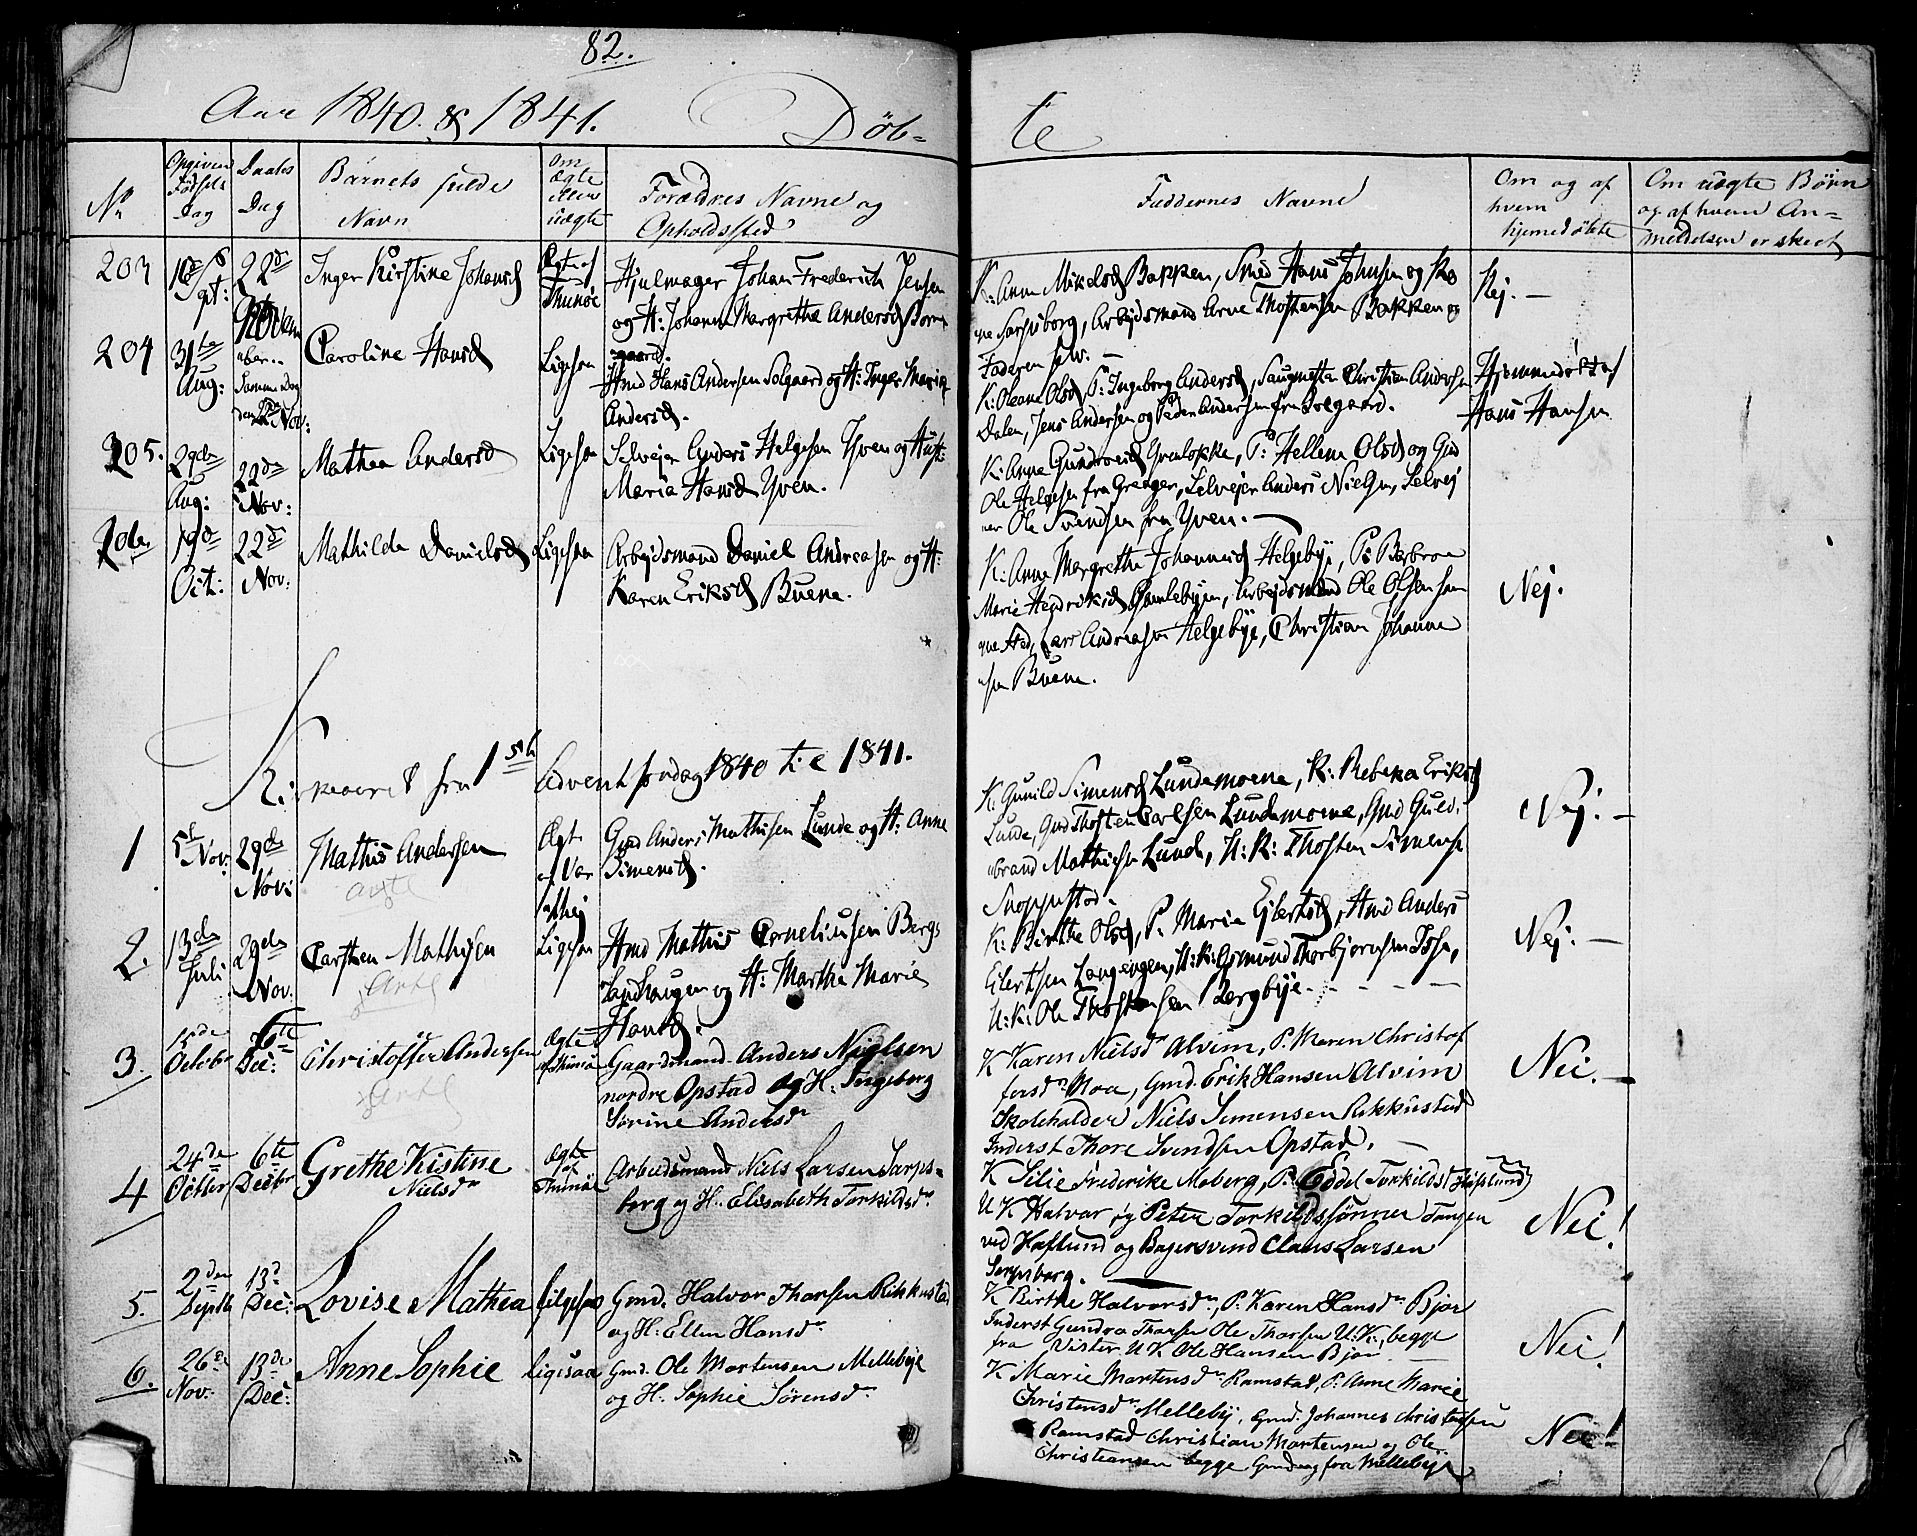 82.
Aar 1840 & 1841. Døb-
te
No
Opgiven Fødsels Dag
Daabs Dag
Barnets fulde Navn
Om Ægte eller Uægte
Forældres Navne og Opholdssted
Faddernes Navne
Om og af hvem hjemedøbte
Om uægte Børn og af hvem Anmeldelsen er skeet
203
22de
Novem
ber
Inger Kirstine Johansd
Ægte af
Thunøe
Hjulmager Johan Frederich Jensen
og H: Johanne Margrethe Andersd Borre
gaard.
K: Anne Mikelsd Bakken, Smed Hans Johnsen og Ko
ne Sarpsborg, Arbejdsmand Arne Thostensen Bakken og
Faderen selv. —
Nej. —
204
31te
Aug:
Samme Dag
den 22 Nov:
Caroline Hansd
Ligesaa
Hmd Hans Andersen Solgaard og H: Inger Maria
Andersd.
K: Oleane Olsd, P: Ingeborg Andersd, Saugmester Christian Andersen
Dalen, Jens Andersen og Peder Andersen fra Solgaard.
Hjemmedøbt af
Hans Hansen
205.
29de
Aug:
22de
Nov:
Mathea Andersd
Ligesaa
Selvejer Anders Helgesen Yven og Hust:
Maria Hansd Yven.
K: Anne Gundersd Grønløkke, P: Hellene Olsd og Gmd
Ole Helgesen fra Greager, Selvejer Anders Nielsen, Selvej
er Ole Svendsen fra Yven. —
206.
19de
Oct:
22de
Nov:
Mathilde Danielsd
Ligesaa
Arbejdsmand Daniel Andreasen og H:
Karen Eriksd Buene.
K: Anne Margrethe Johannesd Helgebÿe, P: Barbroe
Marie Hendriksd Gamlebyen, Arbejdsmand Ole Olsen sam
me Sted, Lars Andreasen Helgebÿe, Christian Johanne
sen Buene.
Nej.
Kirkeaaret fra 1ste Advent søndag 1840 til 1841.
1
5te
Nov:
29de
Nov:
Mathis Andersen
Ægte
af Var
Gmd Anders Mathisen Lunde og H: Anne
Simensd.
K: Gunild Simensd Lundemoene, K: Rebeka Eriksd
Lunde, Gmd Thosten Carlsen Lundemoene, Gmd Guld
brand Mathisen Lunde, U: K: Thosten Simense
Snoppestad.
Nej. —
2.
13de
Juli
29de
Nov:
Carsthen Mathisen
Ligesaa
Hmd Mathis Corneliusen Bergs
landhaugen og H: Martha Marie
Hansd.
K: Birthe Olsd, P. Maria Ejlertsd, Hmd Anders
Eilertsen Langengen, U: K: Gmund Thorbjørnsen Isse,
U: K: Ole Thostensen Bergbÿe. - - - -
Nej. —
3.
15de
October
6te
Dec:
Christoffer Andersen
Ægte
af Thunøe
Gaardmand Anders Nielsen
nordre Opstad og H. Ingeborg
Sørine Andersdr
K Karen Nielsdr Alvim, P. Maren Christof
fersdr Moa, Gmd. Erik Hansen Alvim
Skoleholder Niels Simensen Rikkustad
Inderst Thore Svendsen Opstad. —
Nei. —
4
24de
Octbr
6te
Decbr
Grethe Kistine
Nielsdr
Ægte
af
Thunøe
Arbeidsmand Niels Larsen Sarps-
borg og H. Elisabeth Torkildsdr
K Silie Frederike Moberg, P. Eddel Torkildsd (Haflund)
U K Halvor og Peter Torkildssønner Tangen
ved Haflund og Bagersvend Claus Larsen
Sarpsborg.
Nei!
5.
2den
Septb
13d
Dec:
Lovise Mathea
Ligesaa
Gmd. Halvor Thorsen Rikkustad
og H: Ellen Hansdr
K Birthe Halvorsdr, P. Karen Hansdr Bjør
Inderst Gundro Thorsen Ole Thorsen U. K., begge
fra Vister U K Ole Hansen Bjør —
Nei!
6.
26de
Nov:
13de
Dec:
Anne Sophie
Ligesaa
Gmd. Ole Mortensen Mellebye
og H. Sophie Sørensdr
K Marie Mortensdr Ramstad, P. Anne Marie
Christensdr Mellebÿ, Gmd. Johannes Christensen
Ramstad Christian Mortensen og Ole
Christiansen begge Gmd og fra Mellebye
Nei!